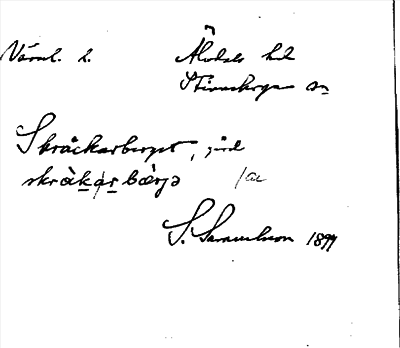 Värml. l.
Älvdals hd
Stjärnskogs sn
Skråckarberget, gård
skråkarbærjə /ac
S. Samuelsson 1899